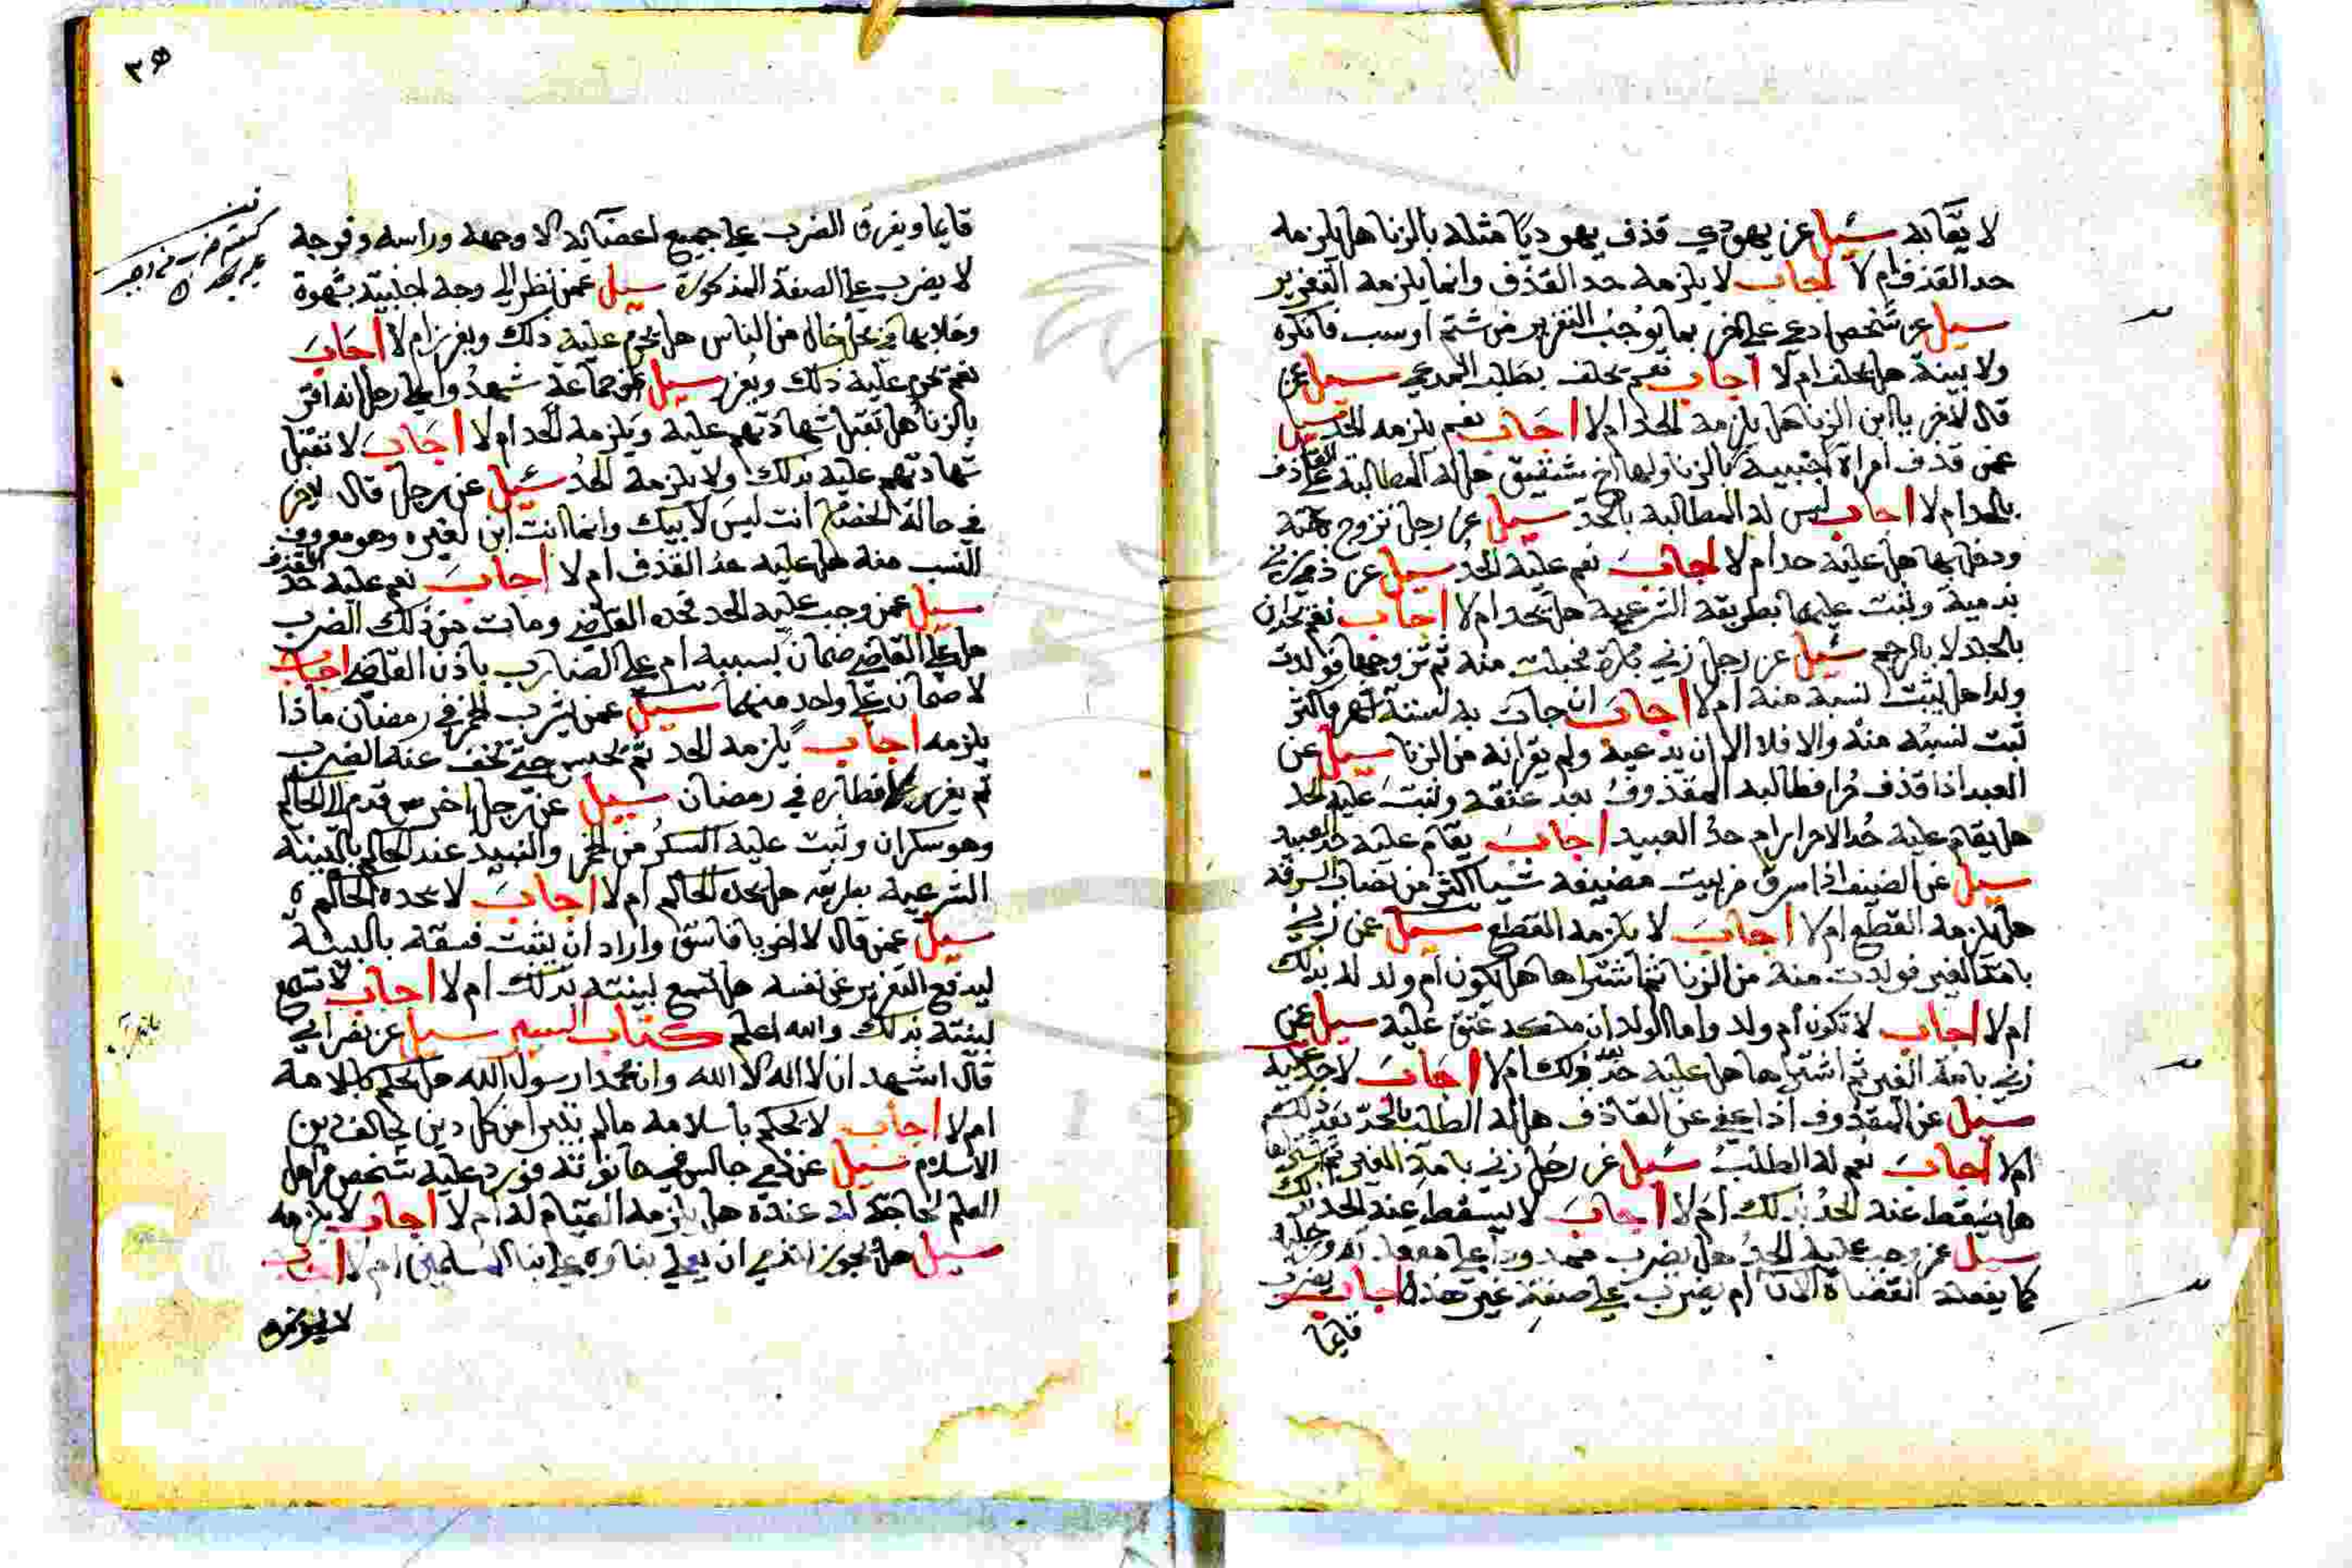 لا يقابه سئيل عن يهودي قذف يهوديا مثله بالزنا هل يلزمه
حد القذف ام لا اجاب لا يلزمه حد القذف وانما يلزمه التعزير
سيل عن شخص ادعى على اخر بما يوجب التعزير من شتم او سب فانكره
ولا بينة هل يحلف ام لا اجاب نعم يحلف بطلب المدعي سيل عن
قال لاخر يا ابن الزنا هل يلزمه الحد ام لا اجاب نعم يلزمه الحد سيل
عمن قذف امراة اجنبية بالزنا ولها اخ شقيق هل له المطالبة على القاذف
بالحد ام لا اجاب ليس له المطالبة بالحد سيل عن رجل تزوج
ودخل بها هل عليه حد ام لا اجاب نعم عليه الحد سيل عن ذمي زني
بذمية وثبت عليهما بطريقه الشرعية هل يحد ام لا اجاب نعم يحدان
بالجلد لا بالرجم سئيل عن رجل زني بامرة فحبلت منه ثم تزوجها فولدت
ولدا هل يثبت نسبه منه ام لا اجاب ان جات به لستة اشهر فاكثر
ثبت نسبه منه والا فلا الا ان يدعيه ولم يقر انه من الزنا سيل عن
العبد اذا قذف حرا فطالبه المقذوف بعد عتقه وثبت عليه الحد
هل يقام عليه حد الاحرار ام حد العبيد اجاب يقام عليه حد العبيد
سيل عن الضيف اذا سرق من بيت مضيفه شيا اكثر من نصاب السرقة
هل يلزمه القطع ام لا اجاب لا يلزمه القطع سيل عن زني
بامة الغير فولدت منه من الزنا ثم اشتراها هل تكون ام ولد له بذلك
ام لا اجاب لا تكون ام ولد واما الولد ان ملكه عتق عليه سيل عمن
زني بامة الغير ثم اشتراها هل عليه حد بعد ذلك ام لا اجاب لا حد عليه
سيل عن المقذوف اذا عفى عن القاذف هل له الطلب بالحد بعد ذلك
ام لا اجاب نعم له الطلب سئيل عن رجل زني بامة الغير ثم اشتراها
هل يسقط عنه الحد بذلك ام لا اجاب لا يسقط عنه الحد بذلك
سيل عمن وجب عليه الحد هل يضرب ممدودا على
كما يفعله القضاة الان ام يضرب على صفة غير هذه اجاب يضرب
قايما
٣٥
قايما ويفرق الضرب على جميع اعضائه الا وجهه وراسه وفرجه
لا يضرب على الصفة المذكورة سيل عمن نظر الى وجه اجنبية بشهوة
وخلا بها في محل خال من الناس هل يحرم عليه ذلك ويعزر ام لا اجاب
نعم يحرم عليه ذلك ويعزر سيل عن جماعة شهدوا على رجل انه اقر
بالزنا هل تقبل شهادتهم عليه ويلزمه الحد ام لا اجاب لا تقبل
شهادتهم عليه بذلك ولا يلزمه الحد سئيل عن رجل قال لاخر
في حالة الخصام انت ليس لابيك وانما انت ابن لغيره وهو معروف
النسب منه هل عليه حد القذف ام لا اجاب نعم عليه حد القذف
سيل عمن وجب عليه الحد فحده القاضي ومات من ذلك الضرب
هل على القاضي ضمان بسببه ام على الضارب باذن القاضي اجاب
لا ضمان على واحد منهما سيل عمن يشرب الخمر في رمضان ماذا
يلزمه اجاب يلزمه الحد ثم يحبس حتى يخف عنه الضرب
ثم يعزر لافطاره في رمضان سيل عن رجل اخرس قدم الى الحاكم
وهو سكران وثبت عليه السكر من الخمر والنبيذ عند الحاكم بالبينة
الشرعية بطريقه هل يحده الحاكم ام لا اجاب لا يحده الحاكم ٥
سيل عمن قال لاخر يا فاسق واراد ان يثبت فسقه بالبينة
ليدفع التعزير عن نفسه هل تسمع بينته بذلك ام لا اجاب لا تسمع
بينته بذلك والله اعلم كتاب السير سيل عن نصراني
قال اشهد ان لا اله الا الله وان محمدا رسول الله هل يحكم باسلامه
ام لا اجاب لا يحكم باسلامه مالم يتبرا من كل دين يخالف دين
الاسلام سيل عن ذمي جالس في حانوته فورد عليه شخص من اهل
العلم لحاجة له عنده هل يلزمه القيام له ام لا اجاب لا يلزمه
سيل هل يجوز للذمي ان يعلي بناوه على بنا المسلمين ام لا اجاب
لا يجوز